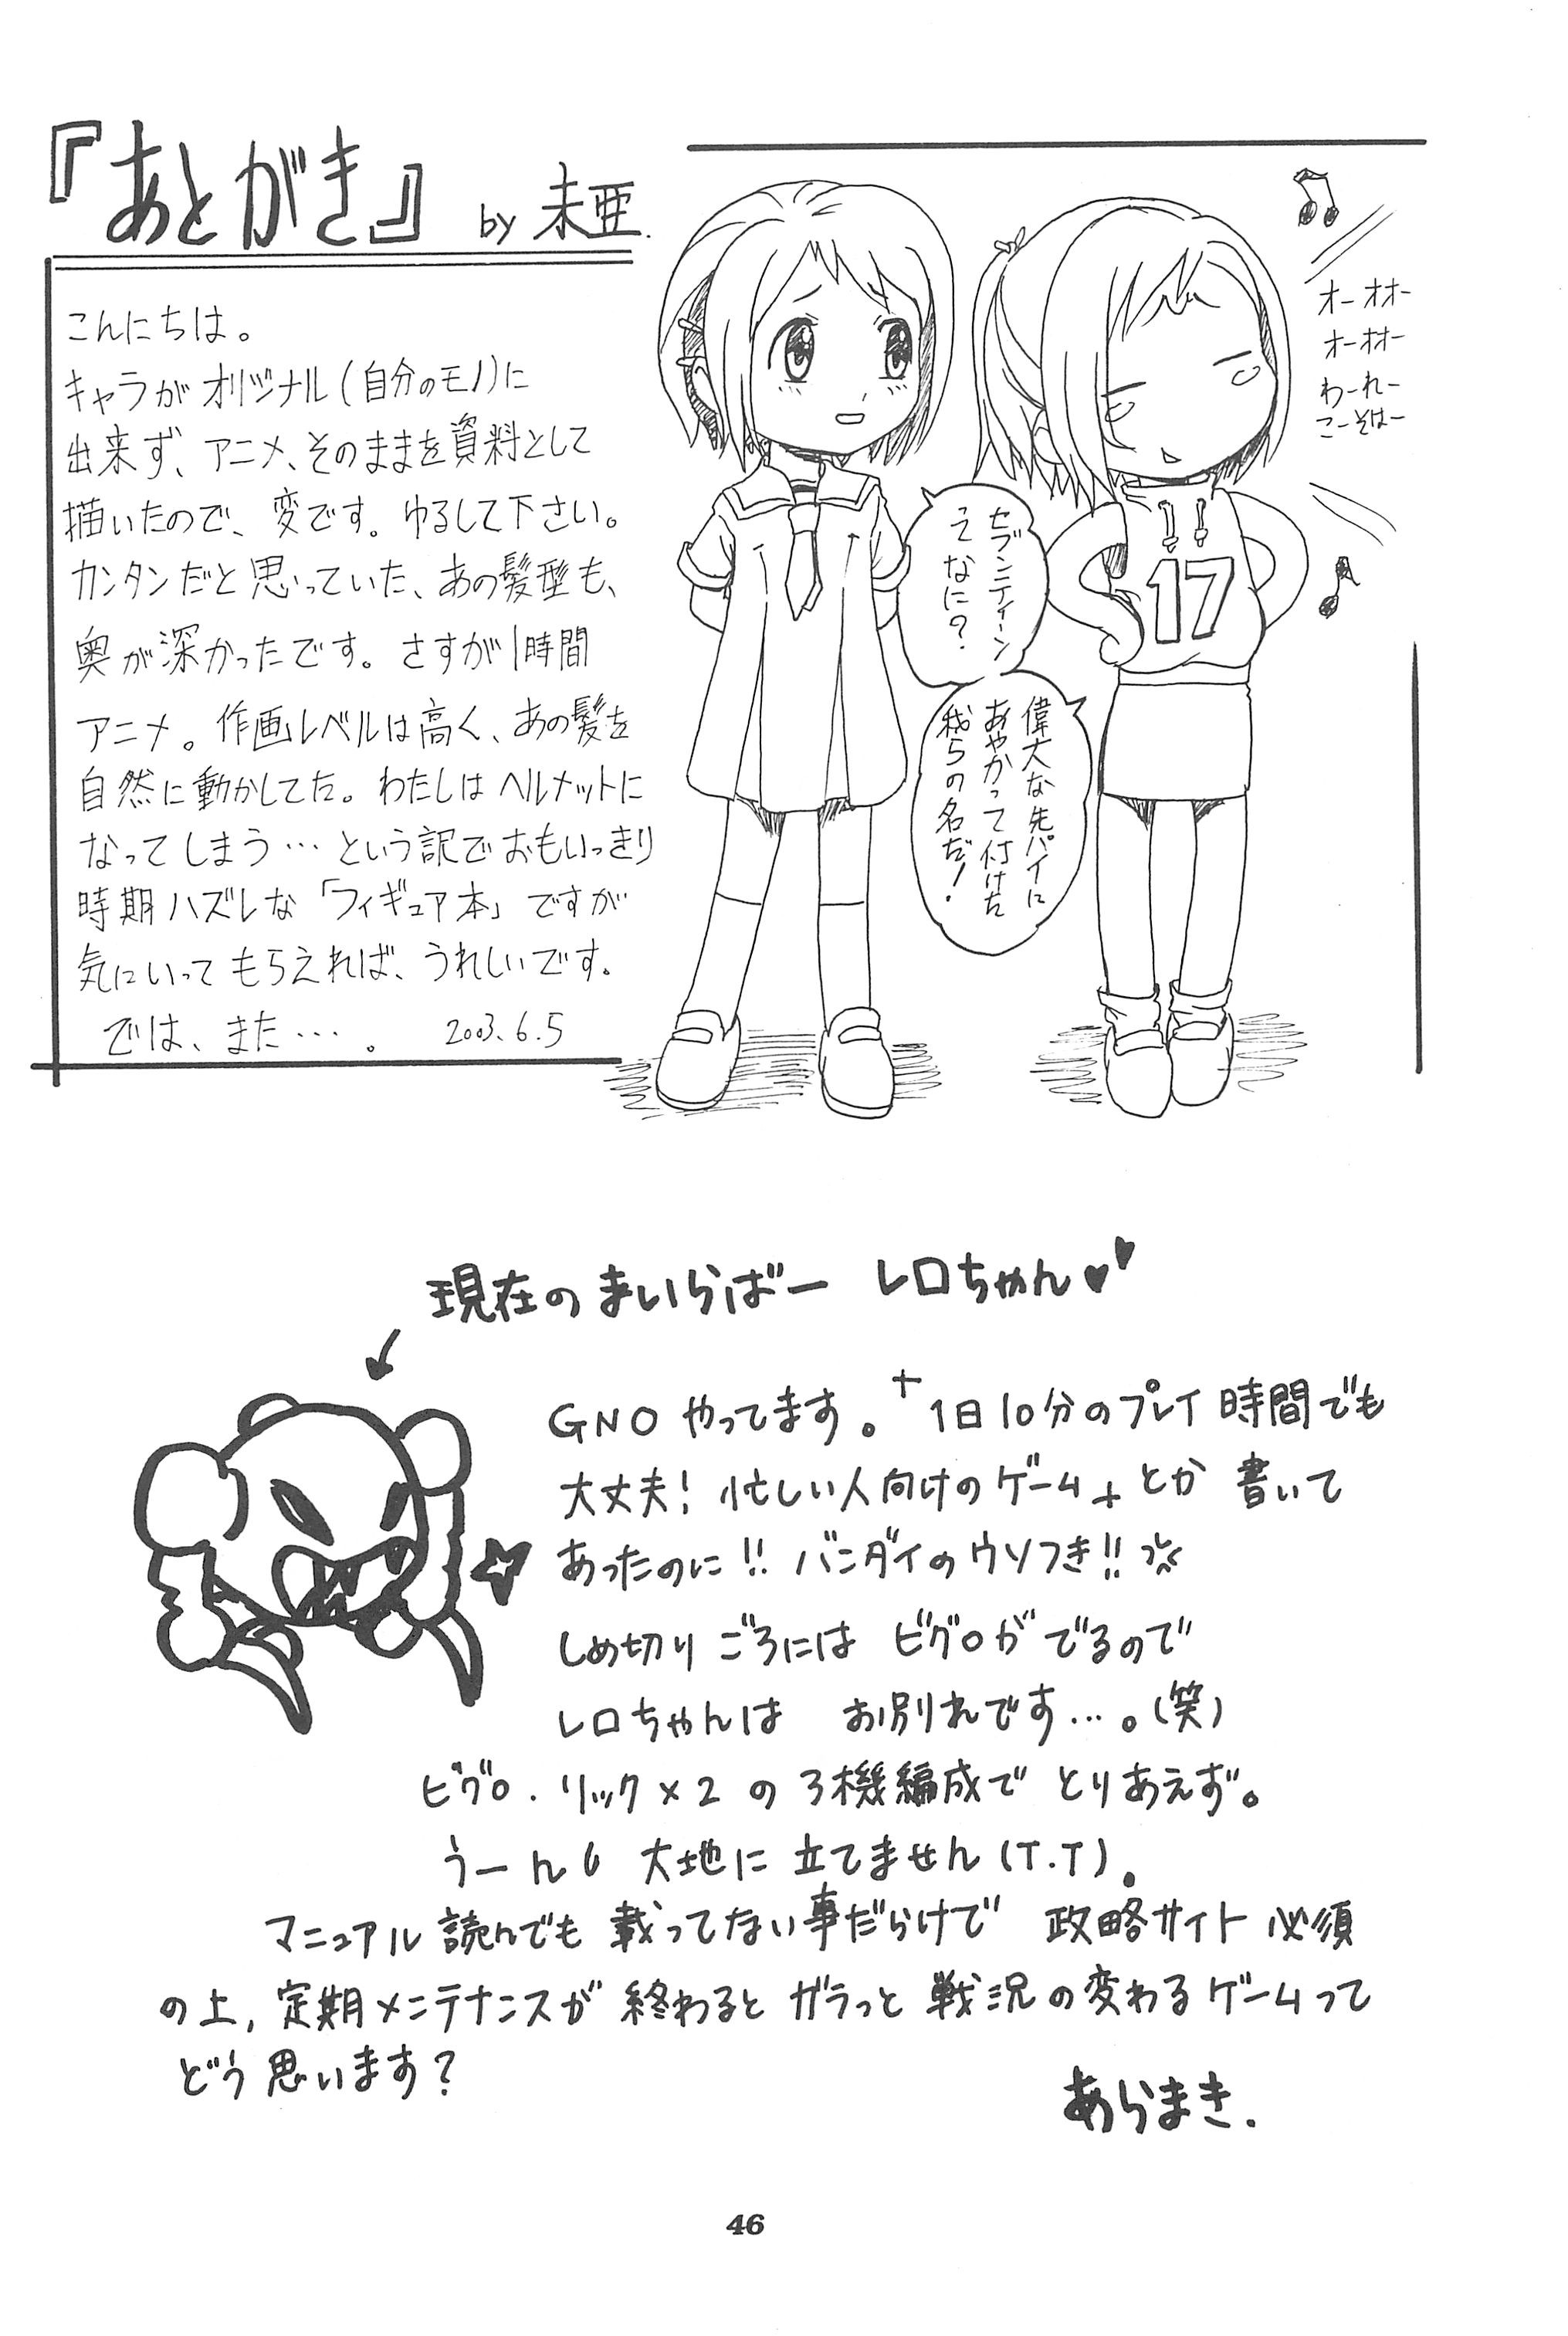 『あとがき』 by 未亜.
こんにちは。
キャラがオリヅナル(自分のモノ)に
出来ず、アニメ、そのままを資料として
描いたので、変です。ゆるして下さい。
カンタンだと思っていた、あの髪型も、
奥が深かったです。さすが1時間
アニメ。作画レベルは高く、あの髪を
自然に動かしてた。わたしはヘルメットに
なってしまう…という訳でおもいっきり
時期ハズレな「フィギュア本」ですが
気にいってもらえれば、うれしいです。
では、また…。 2003.6.5
オーオオー
オーオオー
わーれー
こーそはー
セブンティーン
てなに?
17
偉大な先パイに
あやかって付けた
我らの名だ!
現在のまいらばー レロちゃん♥♥
GNOやってます。"1日10分のプレイ時間でも
大丈夫!忙しい人向けのゲーム"とか書いて
あったのに!!バンダイのウソつき!!
しめ切りごろにはビグロがでるので
レロちゃんは お別れです…。(笑)
ビグロ.リック×2の3機編成でとりあえず。
うーん 大地に立てません(T.T).
マニュアル読んでも載ってない事だらけで 政略サイト必須
の上,定期メンテナンスが終わるとガラっと戦況の変わるゲームって
どう思います?
あらまき.
46